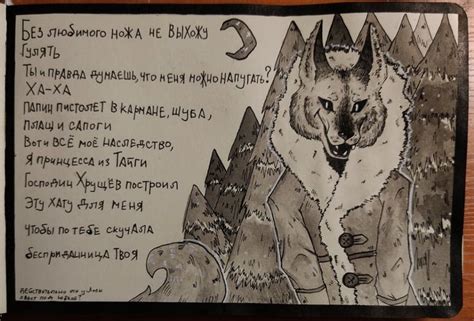 Без любимого ножа не выхожу
Гулять
Ты и правда думаешь, что меня можно напугать?
ХА-ХА
Папин пистолет в кармане, шуба,
плащ и сапоги
Вот и ВСЁ моё наследство,
Я принцесса из Тайги
Господин Хрущёв построил
Эту хату для меня
чтобы по тебе скучала
бесприданница твоя